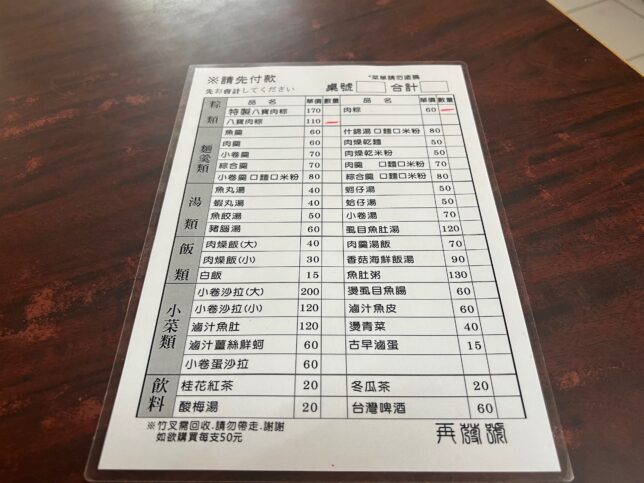 ※請先付款
先お會計してください
*菜單請勿塗鴉
桌號 合計
粽類 品名 單價 數量 品名 單價 數量
特製八寶肉粽 170 肉粽 60
八寶肉粽 110
麵羹類
魚羹 60 什錦湯 口麵口米粉 80
肉羹 60 肉燥乾麵 50
小卷羹 70 肉燥乾米粉 50
綜合羹 70 肉羹 口麵口米粉 70
小卷羹 口麵口米粉 80 綜合羹 口麵口米粉 80
湯類
魚丸湯 40 蚵仔湯 70
蝦丸湯 40 蛤仔湯 70
魚餃湯 50 小卷湯 70
豬腦湯 60 虱目魚肚湯 120
飯類
肉燥飯(大) 40 肉羹湯飯 70
肉燥飯(小) 30 香菇海鮮飯湯 90
白飯 15 魚肚粥 130
小菜類
小卷沙拉(大) 200 燙虱目魚腸 60
小卷沙拉(小) 120 滷汁魚皮 60
滷汁魚肚 120 燙青菜 40
滷汁薑絲鮮蚵 60 古早滷蛋 15
小卷蛋沙拉 60
飲料
桂花紅茶 20 冬瓜茶 20
酸梅湯 20 台灣啤酒 60
※竹叉需回收.請勿帶走.謝謝
如欲購買每支50元
再發號